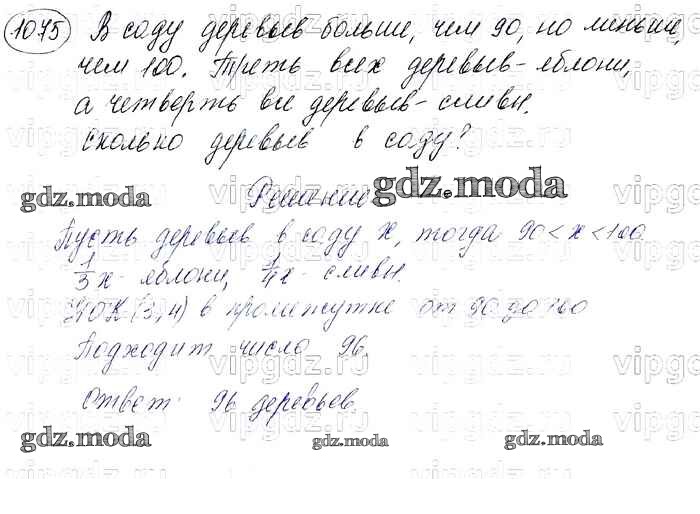 1075 В саду деревьев больше, чем 90, но меньше,
чем 100. Треть всех деревьев - яблони,
а четверть все деревьев - сливы.
Сколько деревьев в саду?
gdz.moda Решение gdz.moda
Пусть деревьев в саду x, тогда 90 < x < 100.
1/3 x - яблони, 1/4 x - сливы.
НОК (3,4) в промежутке от 90 до 100
Подходит число 96.
Ответ: 96 деревьев.
gdz.moda gdz.moda gdz.moda